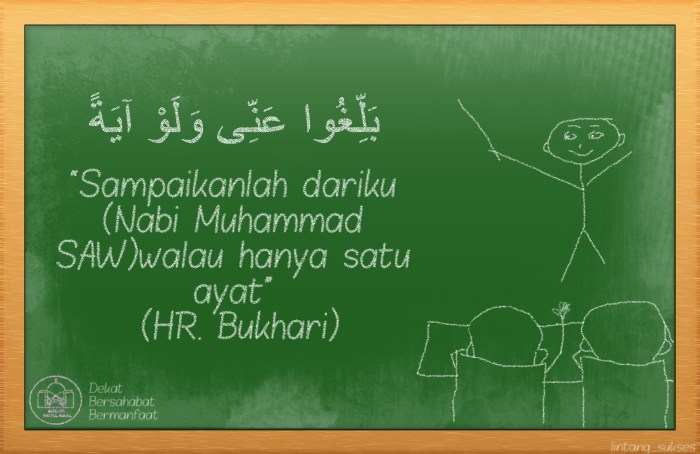 بَلِّغُوا عَنِّى وَلَوْ آيَةً
“Sampaikanlah dariku
(Nabi Muhammad
SAW)walau hanya satu
ayat”
(HR. Bukhari)
Dekat
Bersahabat
Bermanfaat
lintang_sukses